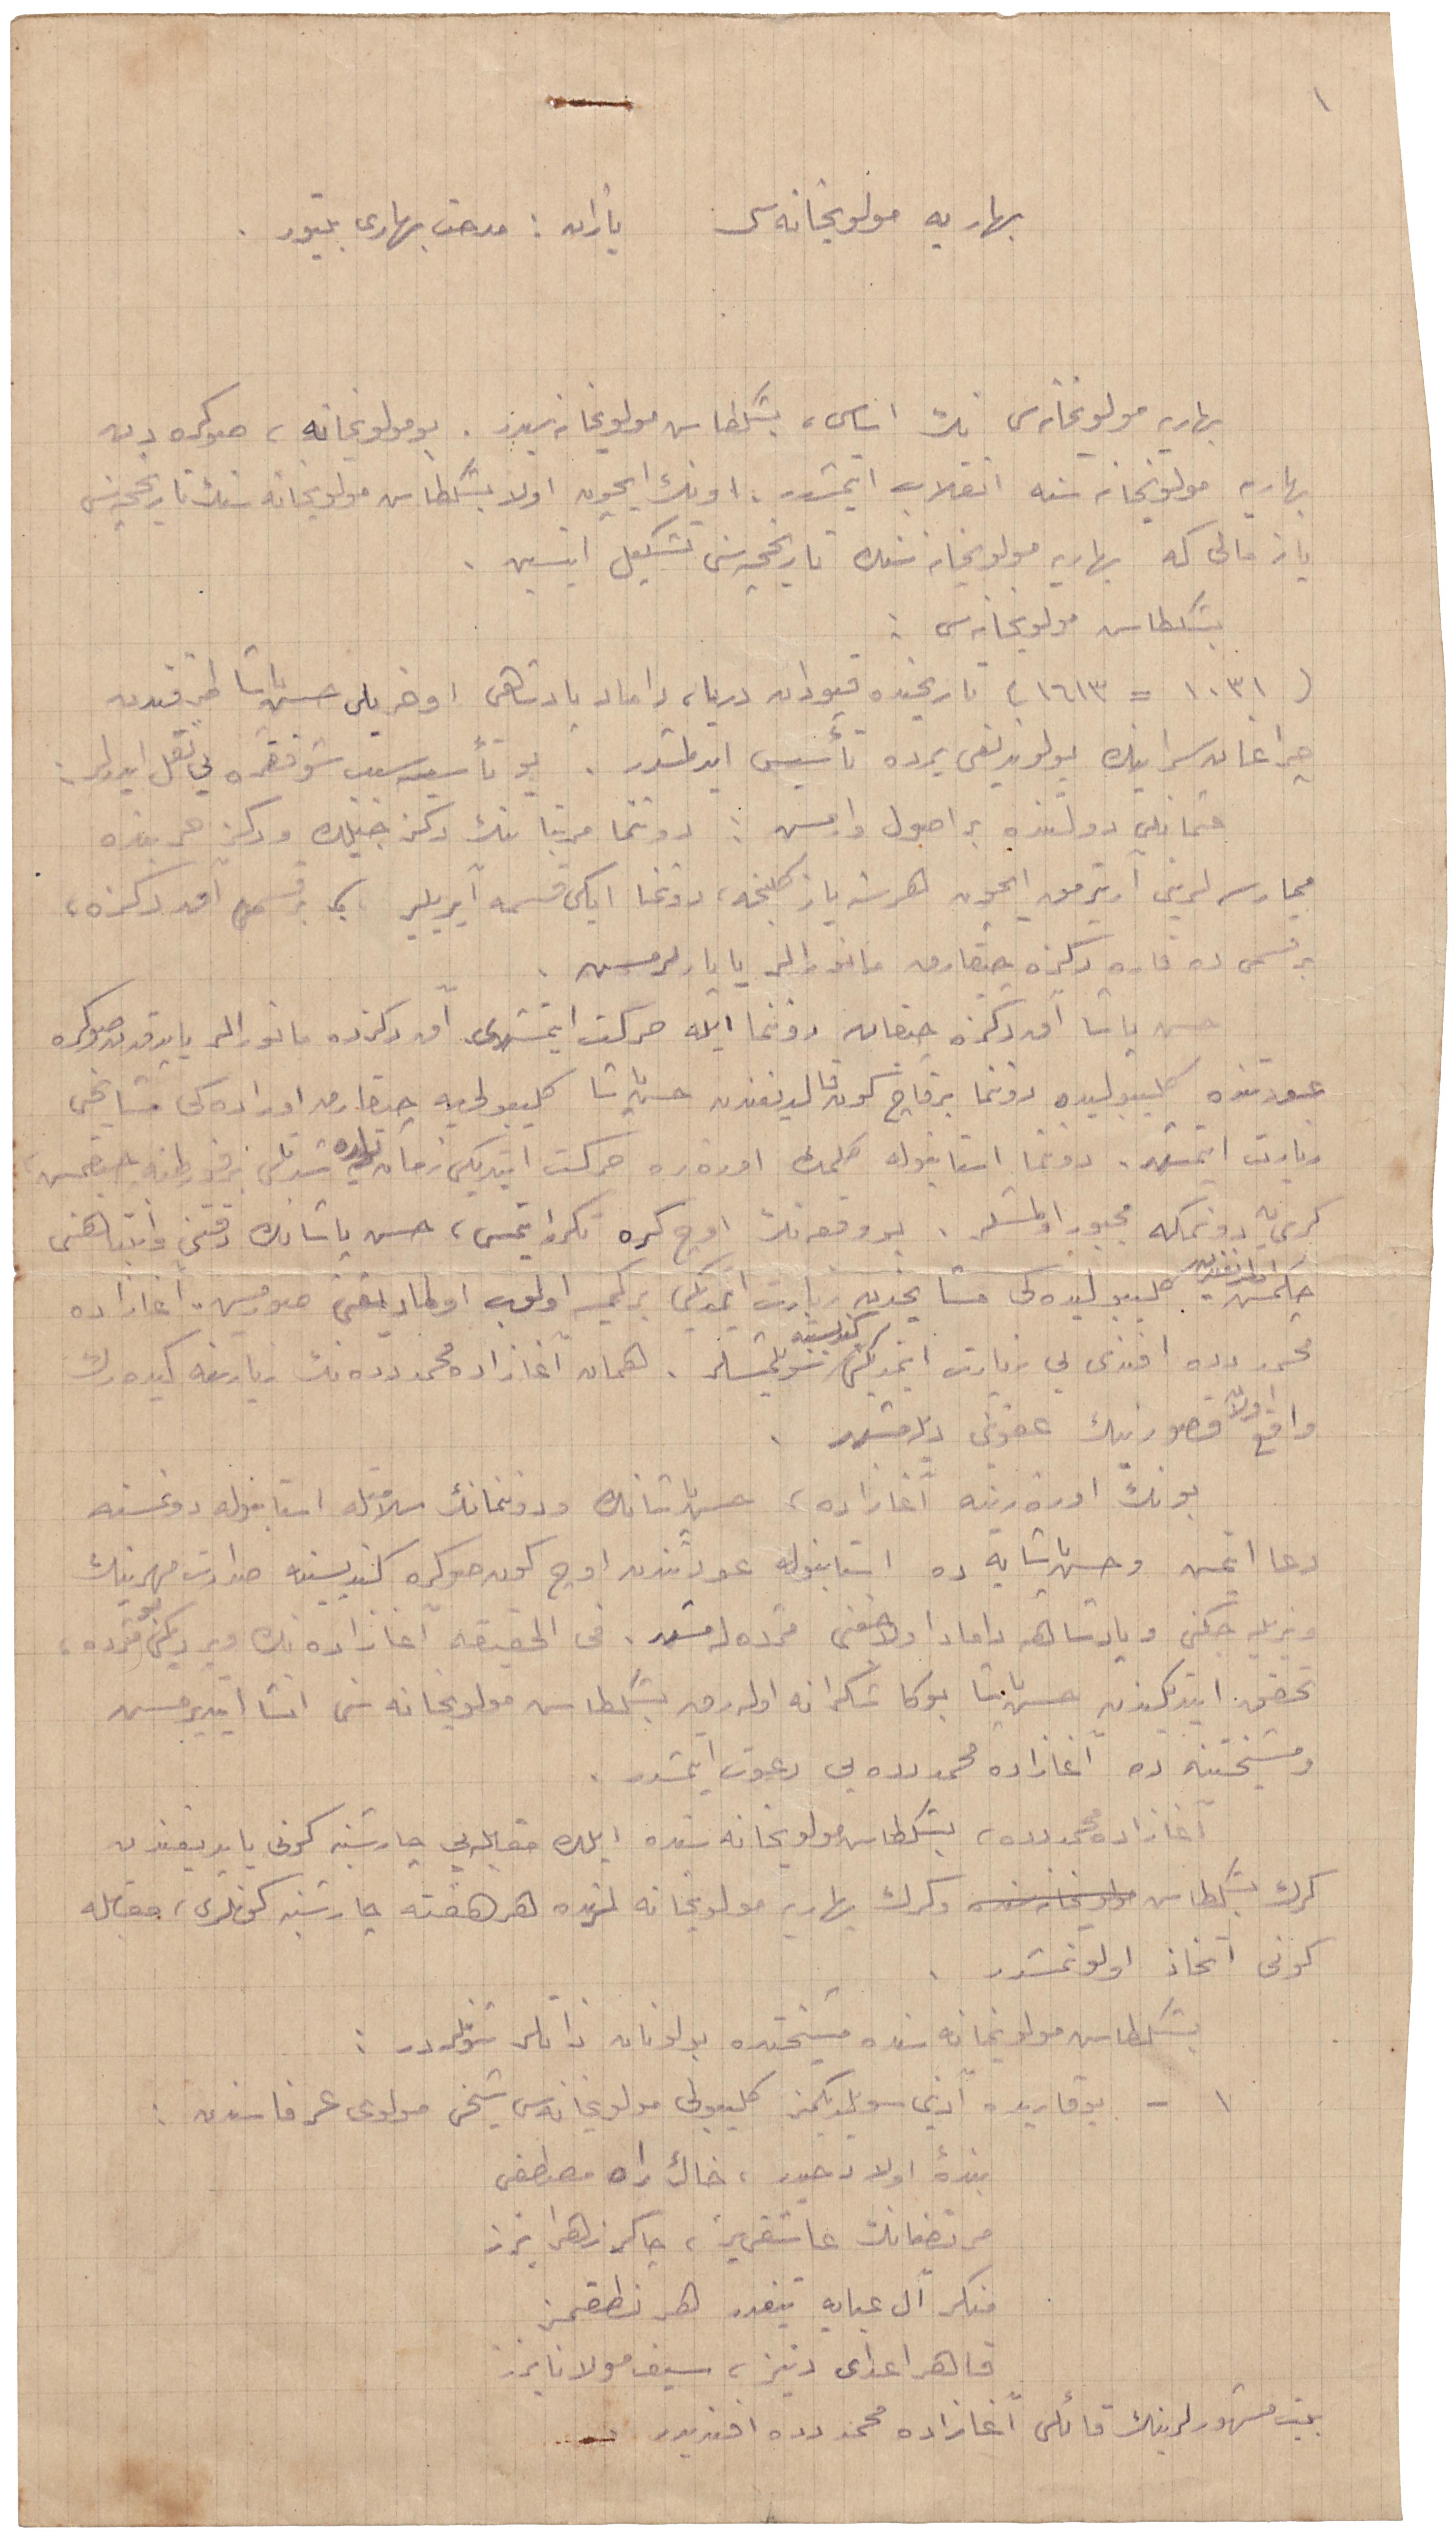 ١
بهاریه مولویخانه‌سی یازان : مدحت بهاری بیتور .
بهاریه مولویخانه‌سی نك اساسی ، بشكطاش مولویخانه‌سیدر . بو مولویخانه ، صوكره‌دن
بهاریه مولویخانه‌سنه انقلاب ایتمشدر . اونك ایچون اولا بشكطاش مولویخانه‌سنك تاریخچه‌سنی
یازمالی كه بهاریه مولویخانه‌سنك تاریخچه‌سنی تشكیل ایتسین .
بشكطاش مولویخانه‌سی :
( ١٠٣١ = ١٦١٣ ) تاریخنده قپودان دریا ، داماد پادشاهی اوخریلی حسن پاشا طرفندن
چراغان سراینك بولوندیغی یرده تأسیس ایدلمشدر . بو تأسیسه سبب شو فقره‌یی نقل ایدرلر :
عثمانلی دولتنده بر اصول وارمش : دوننما مرتباتنك دكزجیلك و دكز حربنده
ممارسه‌لرینی آرتیرمق ایچون هر سنه یاز كلنجه ، دوننما ایكی قسمه آیریلیر ، بر قسمی آق دكزه ،
بر قسمی ده قاره دكزه چیقارق مانورالر یاپارلرمش .
حسن پاشا آق دكزه چیقان دوننما ایله حركت ایتمشدی . آق دكزده مانورالر یاپدقدن صوكره
عودتنده كلیبولیده دوننما برقاچ كون قالدیغندن حسن پاشا كلیبولی‌یه چیقارق اوراده‌كی مشایخی
زیارت ایتمشدر . دوننما استانبوله كلمك اوزره حركت ایتدیكی زمان شدتلی بر فورطنه چیقمش ،
كری‌یه دونمكه مجبور اولمشلر . بو وقعه‌نك اوچ كره تكرر ایتمسی ، حسن پاشانك دقتنی و انتباهنی
چكمش اولدیغندن كلیبولیده‌كی مشایخدن زیارت ایتمدیكی بر كیمسه اولوب اولمادیغنی صورمش . آغازاده
محمد دده افندی‌یی زیارت ایتمدیكنی كندیسنه سویلمشلر . همان آغازاده محمد دده‌نك زیارتنه كیده‌رك
واقع اولان قصورینك عفونی دیله‌مشدر .
بونك اوزرینه آغازاده ، حسن پاشانك و دوننمانك سلامتله استانبوله دونمسنه
دعا ایتمش و حسن پاشایه ده استانبوله عودتندن اوچ كون صوكره كندیسنه صدارت مهرینك
ویریله‌جكنی و پادشاهه داماد اولاجغنی مژده‌له‌مشدر . فی الحقیقه آغازاده‌نك ویردیكی بو مژده ،
تحقق ایتدیكندن حسن پاشا بوكا شكرانه اوله‌رق بشكطاش مولویخانه‌سنی انشا ایتدیرمش
و مشیختنه ده آغازاده محمد دده‌یی دعوت ایتمشدر .
آغازاده محمد دده ، بشكطاش مولویخانه‌سنده ایلك مقابله‌یی چارشنبه كونی یاپدیغندن
كرك بشكطاش مولویخانه‌سنده و كرك بهاریه مولویخانه‌لرنده هر هفته چارشنبه كونلری ، مقابله
كونی اتخاذ اولونمشدر .
بشكطاش مولویخانه‌سنده مشیختده بولونان ذاتلر شونلردر :
١ - یوقاریده آدینی سویلدیكمز كلیبولی مولویخانه‌سی شیخی مولوی عرفاسندن :
بندۀ اولاد حیدر ، خاك راه مصطفی
مرتضانك عاشقی‌یز ، چاكر زهرا یزز
منكر آل عبایه تیغدر هر نطقمز
قاهر اعدای دینز ، سیف مولانا یزز
بیت مشهورلرینك قائلی آغازاده محمد دده افندیدر